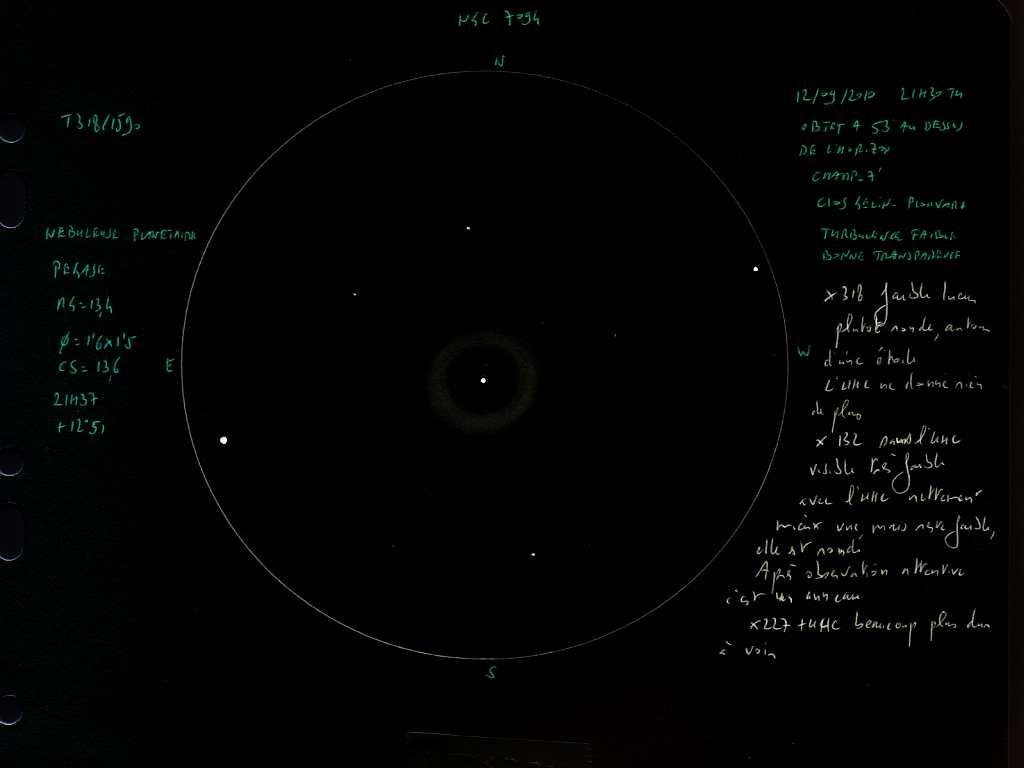 NGC 7094
N
T318/1590
NEBULEUSE PLANETAIRE
PEGASE
MG=13,4
Ø=1'6x1'5
CS=13,6
21H37
+12°51
E
W
S
12/09/2010 21H30 TU
OBJET A 53 AU DESSUS
DE L'HORIZON
CHAMP=7'
CLOS
TURBULENCE FAIBLE
BONNE TRANSPARENCE
x318 faible lueur
plutot ronde, autour
d'une étoile
L'UHC ne donne rien
de plus
x 132 sans l'UHC
visible très faible
avec l'UHC nettement
mieux vue, mais reste faible,
elle est ronde
Après observation attentive
c'est un anneau
x227 +UHC beaucoup plus dur
à voir